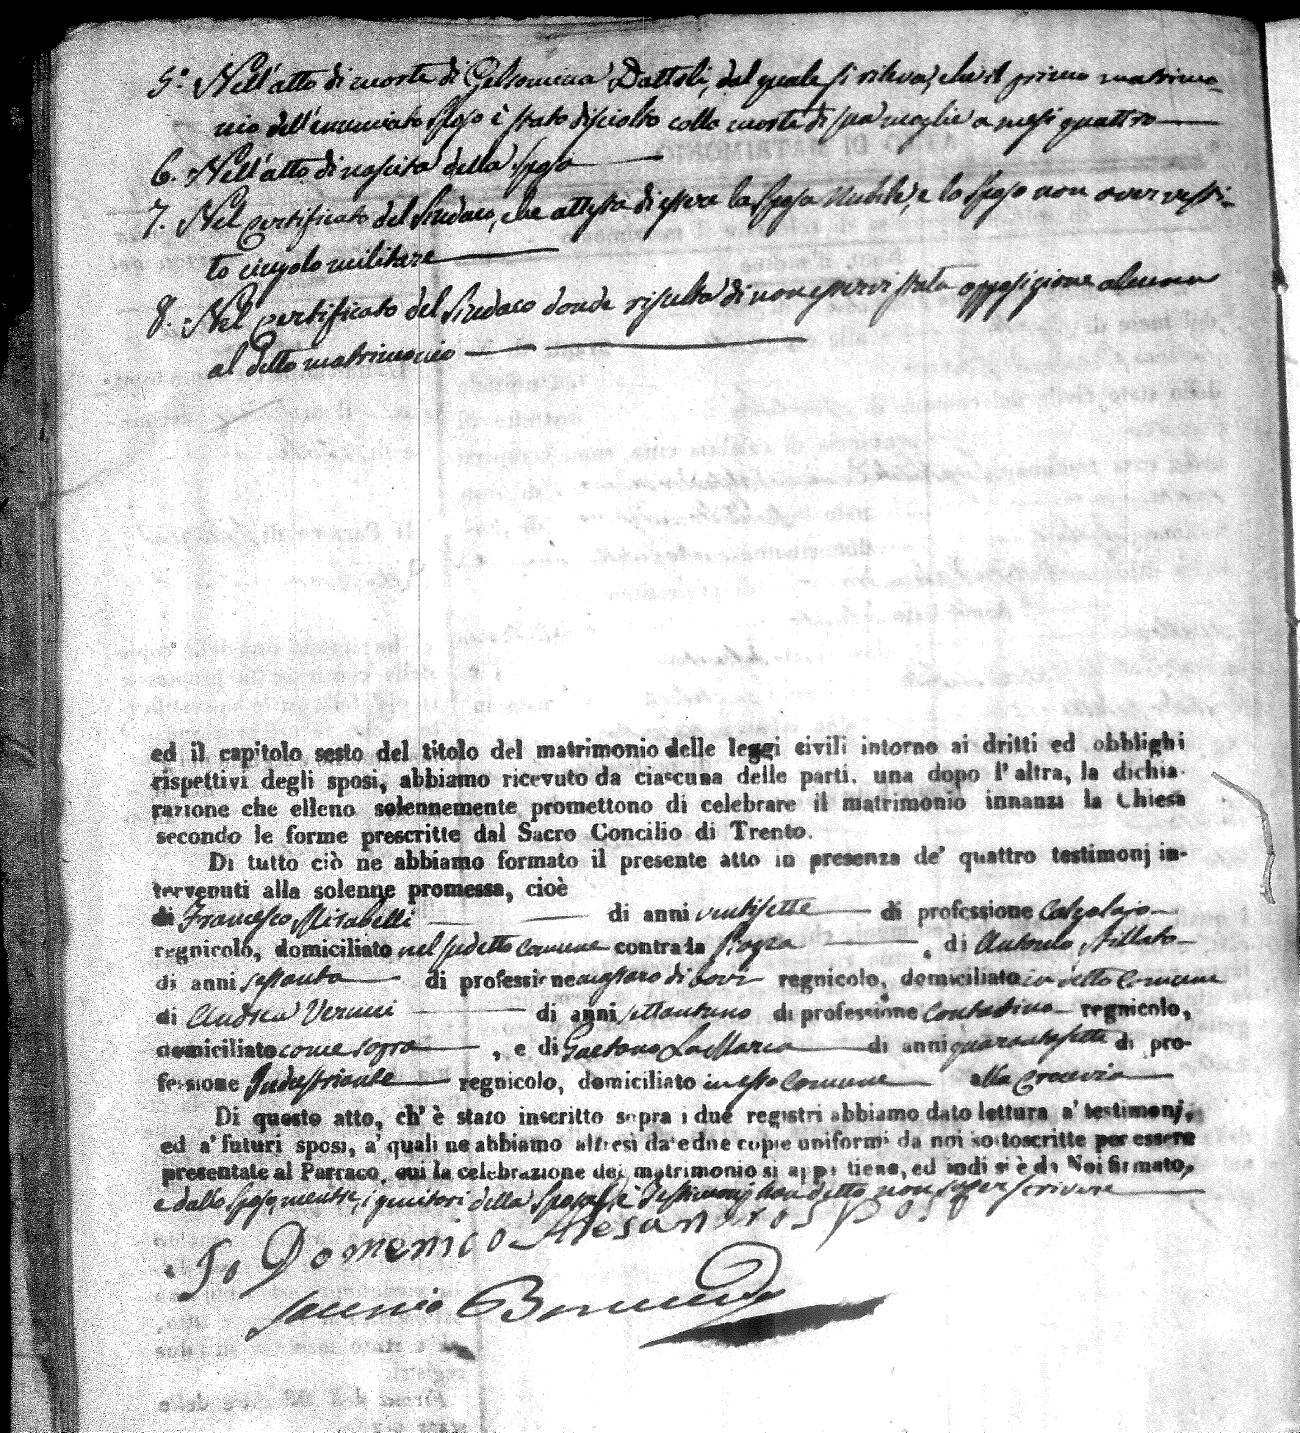 5.° Nell'atto di morte di Gelsomina Dattoli, dal quale si rileva, che il primo matrimo-
nio dell'enunciato sposo è stato disciolto colla morte di sua moglie a mesi quattro
6. Nell'atto di nascita della sposa
7. Nel certificato del Sindaco, che attesta di essere la sposa nubile, e lo sposo non aver vesti-
to cingolo militare
8. Nel certificato del Sindaco donde risulta di non esservi stata opposizione alcuna
al detto matrimonio
ed il capitolo sesto del titolo del matrimonio delle leggi civili intorno ai dritti ed obblighi
rispettivi degli sposi, abbiamo ricevuto da ciascuna delle parti, una dopo l'altra, la dichia-
razione che elleno solennemente promettono di celebrare il matrimonio innanzi la Chiesa
secondo le forme prescritte dal Sacro Concilio di Trento.
Di tutto ciò ne abbiamo formato il presente atto in presenza de' quattro testimonj in-
tervenuti alla solenne promessa, cioè
di Francesco Mirabelli di anni ventisette di professione Calzolajo
regnicolo, domiciliato nel sudetto Comune contrada , di Antonio
di anni sessanta di professione di bovi regnicolo, domiciliato in detto Comune
di Andrea di anni settantuno di professione Contadino regnicolo,
domiciliato come sopra , e di Gaetano La Marca di anni quarantasette di pro-
fessione Industriante regnicolo, domiciliato in esso Comune alla
Di questo atto, ch'è stato inscritto sopra i due registri abbiamo dato lettura a' testimonj,
ed a' futuri sposi, a' quali ne abbiamo altresì date due copie uniformi da noi sottoscritte per essere
presentate al Parroco, cui la celebrazione del matrimonio si appartiene, ed indi si è da Noi firmato,
e dallo sposo, mentre i genitori della sposa, e testimonj han detto non saper scrivere
Io Domenico Alesandro